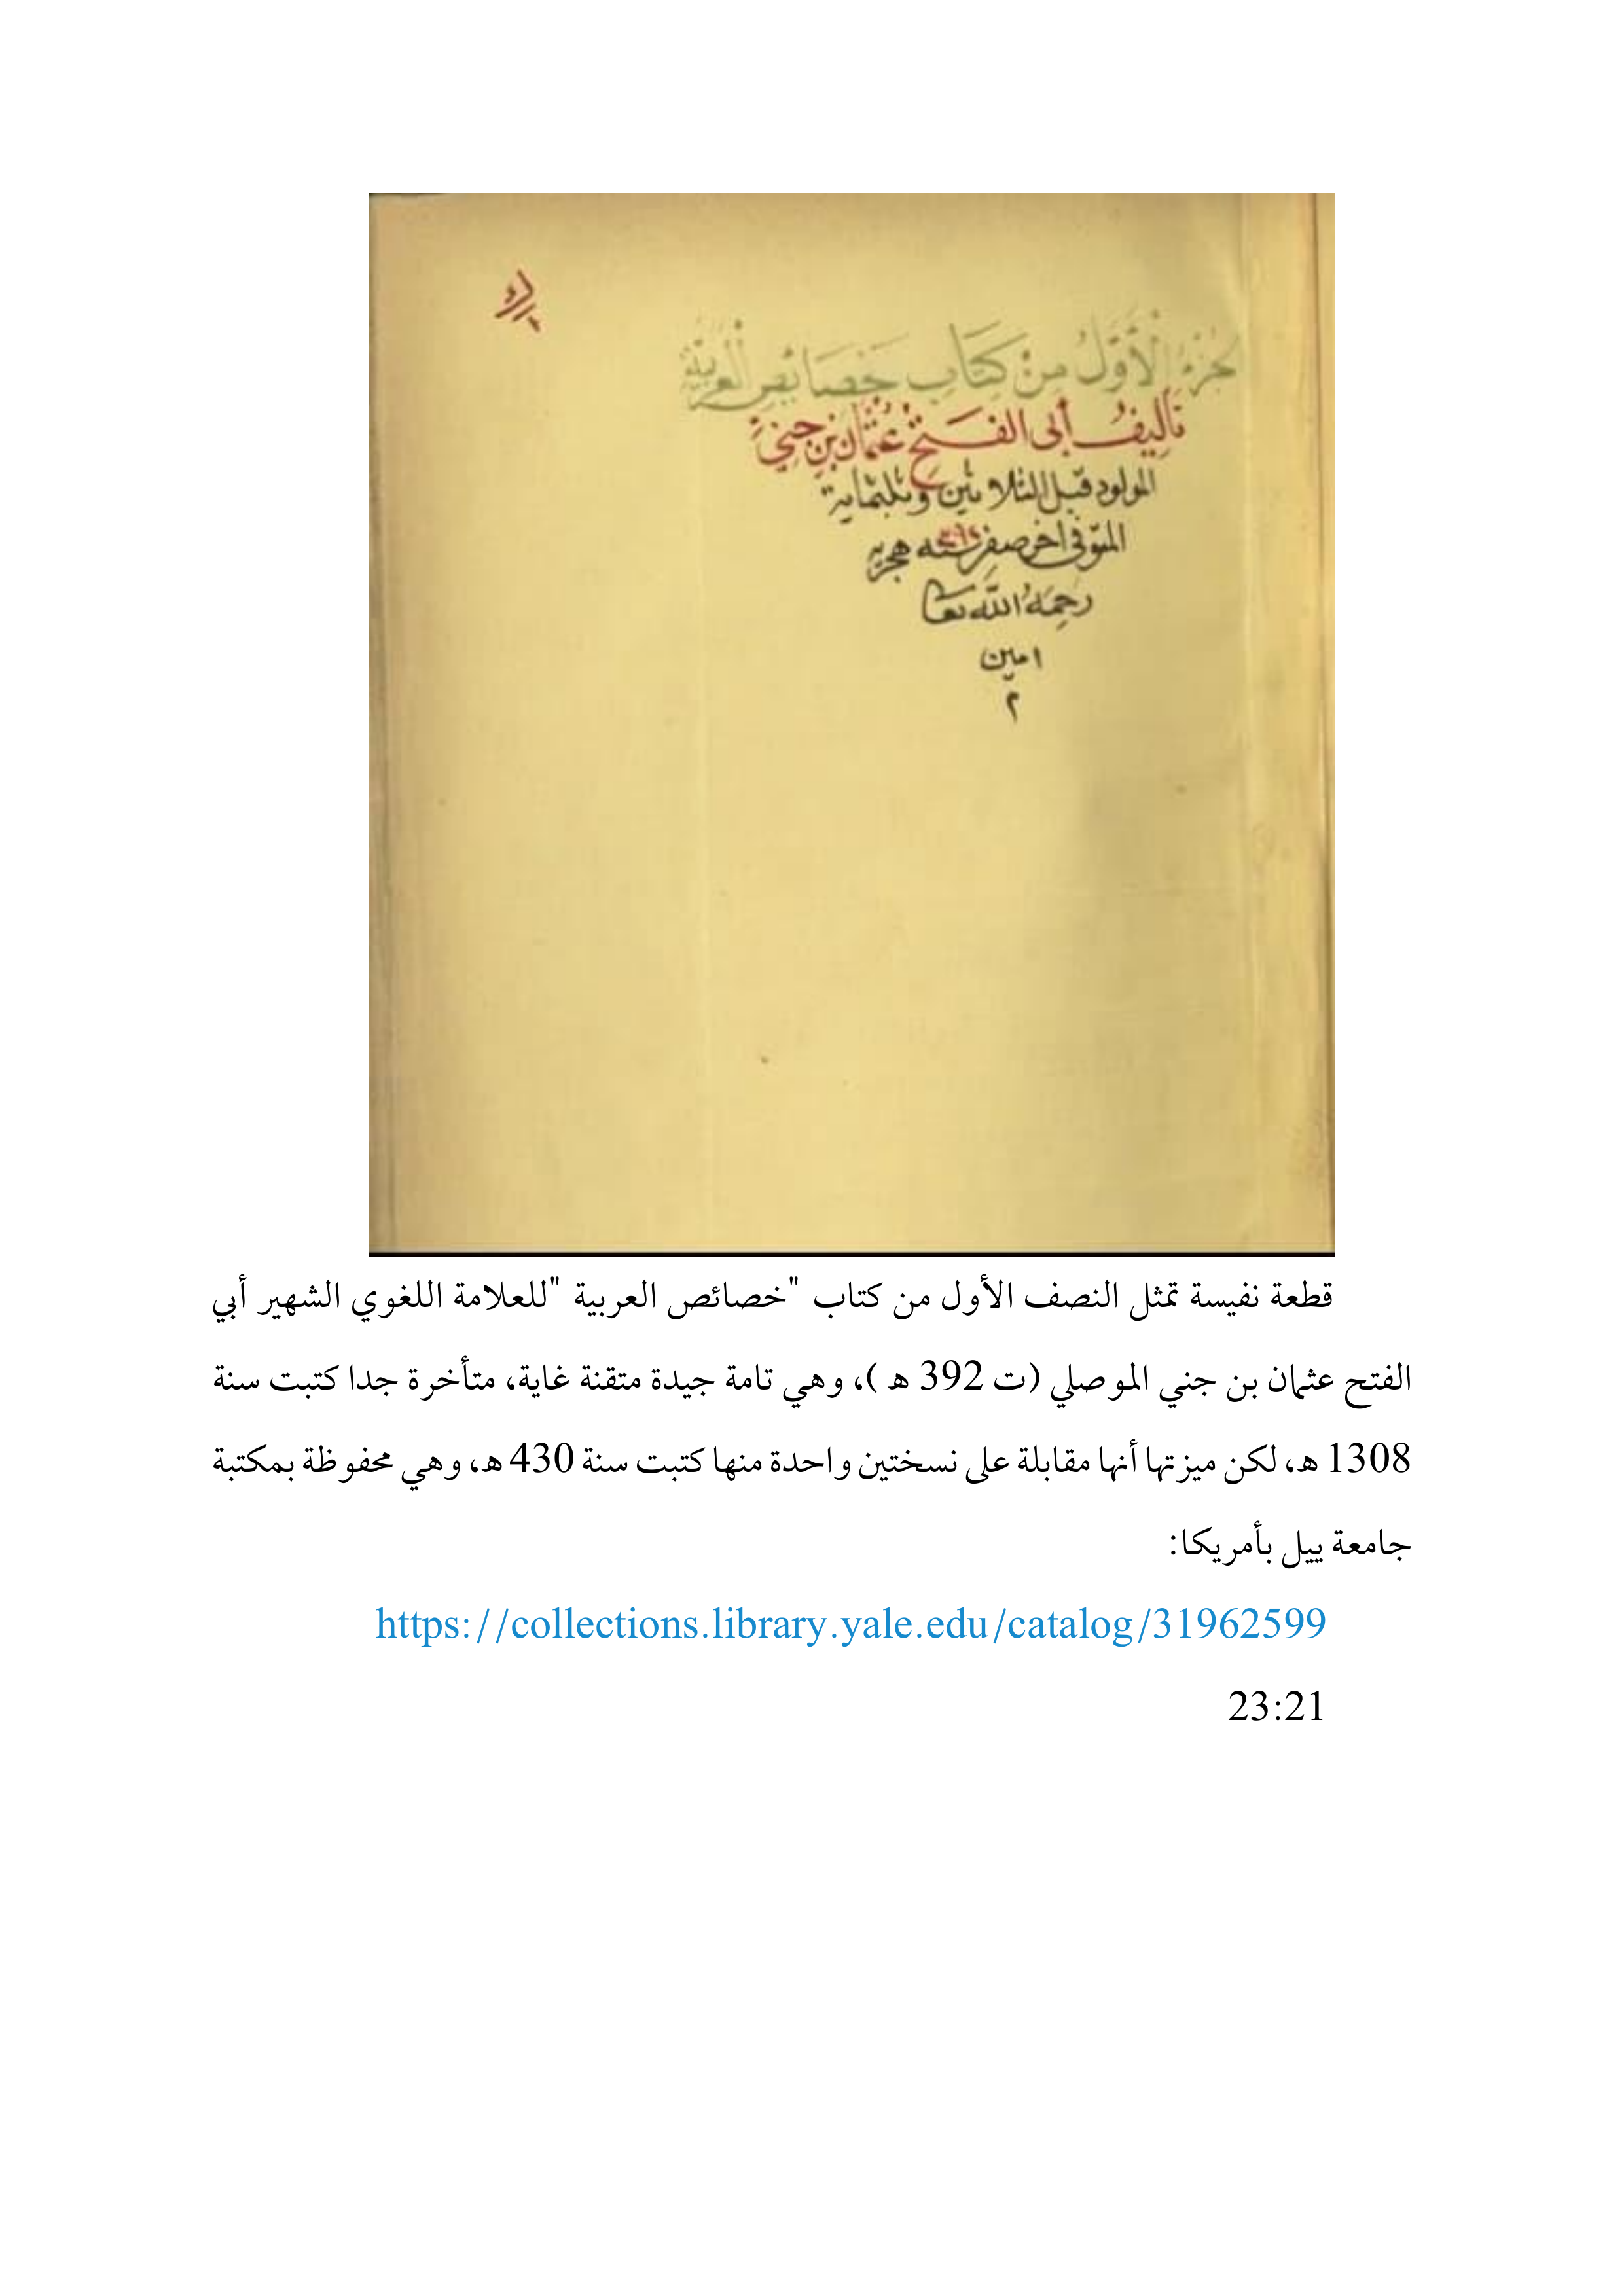 جُزءُ الأَوَّلُ مِنْ كِتَابِ خَصَائِصِ الْعَرَبِيَّةِ
تَأْلِيفُ أبى الفَتْحِ عُثْمَان بْنِ جِنِي
المولود قبل الثلاثين وثلثماية
المتوفى اخر صفر سنه هجريه
رَحِمَهُ اللَّه تعا
امين
م
قطعة نفيسة تمثل النصف الأول من كتاب "خصائص العربية "للعلامة اللغوي الشهير أبي
الفتح عثمان بن جني الموصلي (ت 392 ه )، وهي تامة جيدة متقنة غاية، متأخرة جدا كتبت سنة
1308 ه، لكن ميزتها أنها مقابلة على نسختين واحدة منها كتبت سنة 430 ه، وهي محفوظة بمكتبة
جامعة ييل بأمريكا:
https://collections.library.yale.edu/catalog/31962599
23:21